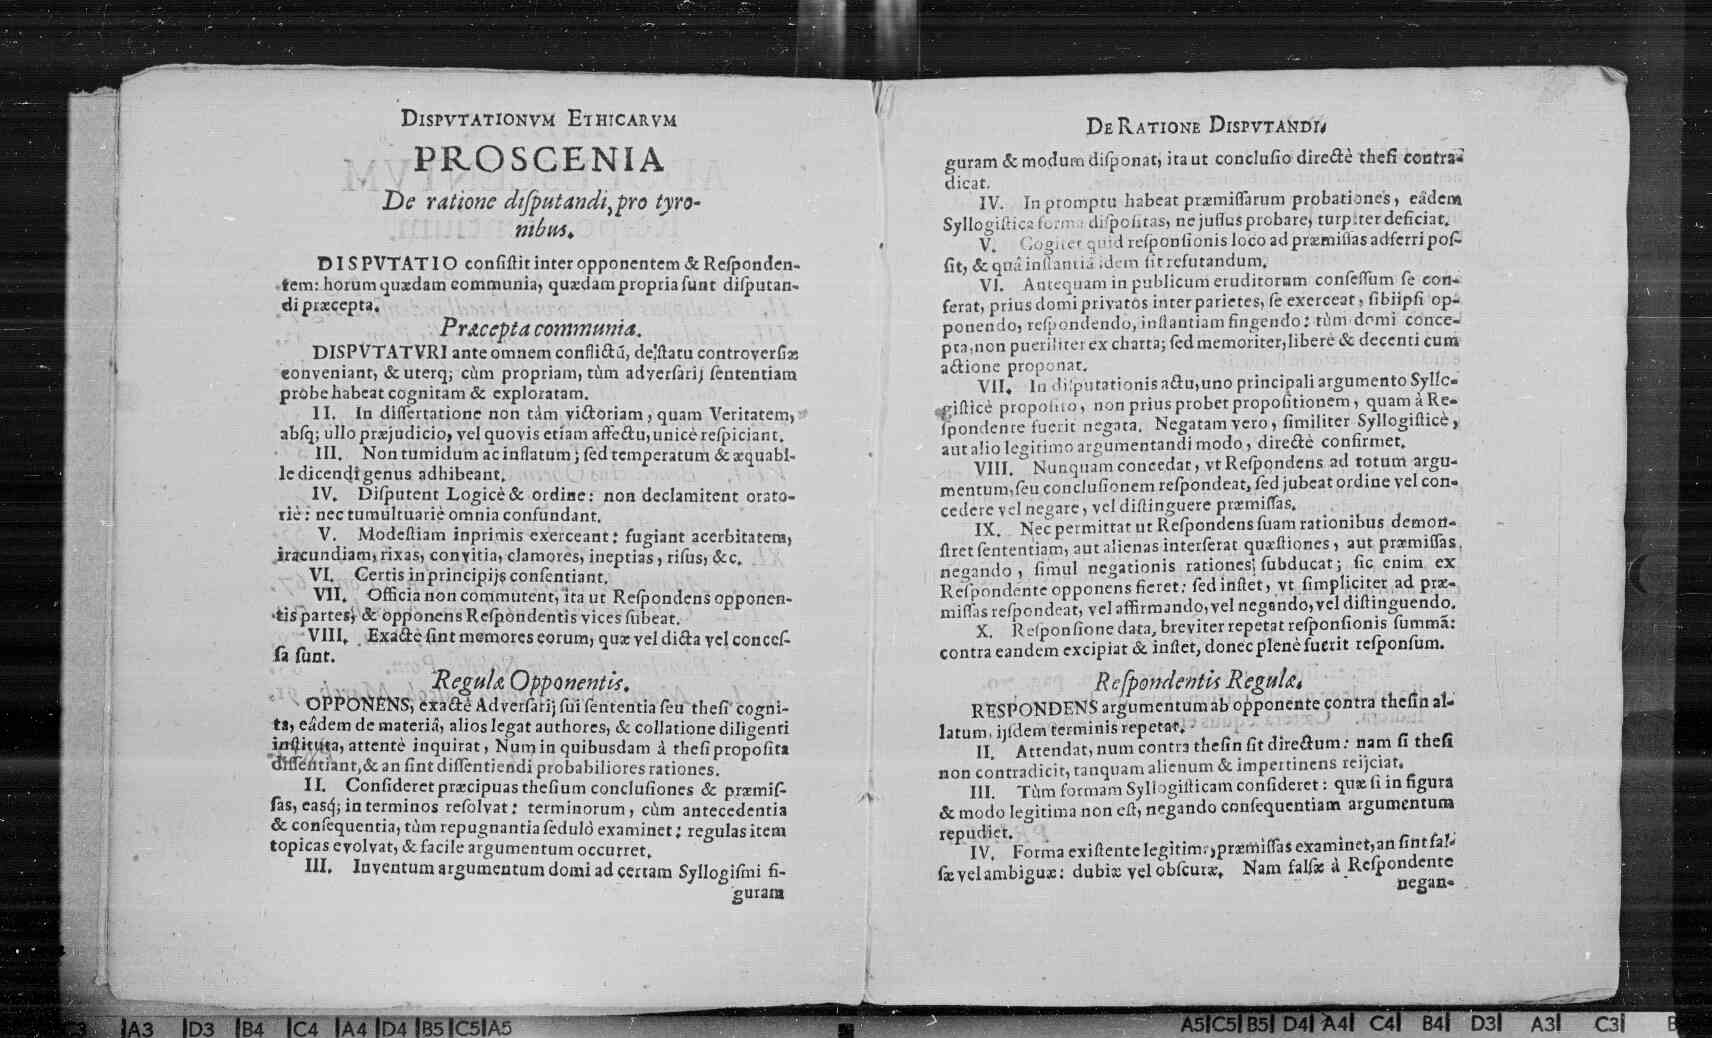 DISPVTATIONVM ETHICARVM
PROSCENIA
De ratione diſputandi, pro tyro-
nibus.
DISPVTATIO conſiſtit inter opponentem & Reſponden-
tem: horum quædam communia, quædam propria ſunt diſputan-
di præcepta.
Præcepta communia.
DISPVTATVRI ante omnem conflictũ, de ſtatu controverſiæ
conveniant, & uterq; cùm propriam, tùm adverſarij ſententiam
probe habeat cognitam & exploratam.
II. In diſſertatione non tàm victoriam, quam Veritatem,
abſq; ullo præjudicio, vel quovis etiam affectu, unicè reſpiciant.
III. Non tumidum ac inflatum; ſed temperatum & æquabi-
le dicendi genus adhibeant.
IV. Diſputent Logicè & ordine: non declamitent orato-
riè: nec tumultuariè omnia confundant.
V. Modeſtiam inprimis exerceant: fugiant acerbitatem,
iracundiam, rixas, convitia, clamores, ineptias, riſus, &c.
VI. Certis in principijs conſentiant.
VII. Officia non commutent, ita ut Reſpondens opponen-
tis partes, & opponens Reſpondentis vices ſubeat.
VIII. Exactè ſint memores eorum, quæ vel dicta vel conceſ-
ſa ſunt.
Regulæ Opponentis.
OPPONENS, exactè Adverſarij ſui ſententia ſeu theſi cogni-
ta, eâdem de materiâ, alios legat authores, & collatione diligenti
inſtituta, attentè inquirat, Num in quibusdam à theſi propoſita
diſſentiant, & an ſint diſſentiendi probabiliores rationes.
II. Conſideret præcipuas theſium concluſiones & præmiſ-
ſas, easq; in terminos reſolvat: terminorum, cùm antecedentia
& conſequentia, tùm repugnantia ſedulò examinet: regulas item
topicas evolvat, & facile argumentum occurret.
III. Inventum argumentum domi ad certam Syllogiſmi fi-
guram
DE RATIONE DISPVTANDI.
guram & modum diſponat, ita ut concluſio directè theſi contra-
dicat.
IV. In promptu habeat præmiſſarum probationes, eâdem
Syllogiſtica forma diſpoſitas, ne juſſus probare, turpiter deficiat.
V. Cogitet quid reſponſionis loco ad præmiſſas adferri poſ-
ſit, & quâ inſtantiâ idem ſit refutandum.
VI. Antequam in publicum eruditorum conſeſſum ſe con-
ferat, prius domi privatos inter parietes, ſe exerceat, ſibiipſi op-
ponendo, reſpondendo, inſtantiam fingendo: tùm domi conce-
pta, non pueriliter ex charta; ſed memoriter, liberè & decenti cum
actione proponat.
VII. In diſputationis actu, uno principali argumento Syllo-
giſticè propoſito, non prius probet propoſitionem, quam à Re-
ſpondente fuerit negata. Negatam vero, ſimiliter Syllogiſticè,
aut alio legitimo argumentandi modo, directè confirmet.
VIII. Nunquam concedat, vt Reſpondens ad totum argu-
mentum, ſeu concluſionem reſpondeat, ſed jubeat ordine vel con-
cedere vel negare, vel diſtinguere præmiſſas.
IX. Nec permittat ut Reſpondens ſuam rationibus demon-
ſtret ſententiam, aut alienas interſerat quæſtiones, aut præmiſſas
negando, ſimul negationis rationes ſubducat; ſic enim ex
Reſpondente opponens fieret: ſed inſtet, vt ſimpliciter ad præ-
miſſas reſpondeat, vel affirmando, vel negando, vel diſtinguendo.
X. Reſponſione data, breviter repetat reſponſionis ſummã:
contra eandem excipiat & inſtet, donec plenè fuerit reſponſum.
Reſpondentis Regulæ.
RESPONDENS argumentum ab opponente contra theſin al-
latum, ijſdem terminis repetat.
II. Attendat, num contra theſin ſit directum: nam ſi theſi
non contradicit, tanquam alienum & impertinens reijciat.
III. Tùm formam Syllogiſticam conſideret: quæ ſi in figura
& modo legitima non eſt, negando conſequentiam argumentum
repudiet.
IV. Forma exiſtente legitima, præmiſſas examinet, an ſint fal-
ſæ vel ambiguæ: dubiæ vel obſcuræ. Nam falſæ à Reſpondente
negan-
C3 A3 D3 B4 C4 A4 D4 B5 C5 A5
A5 C5 B5 D4 A4 C4 B4 D3 A3 C3 B